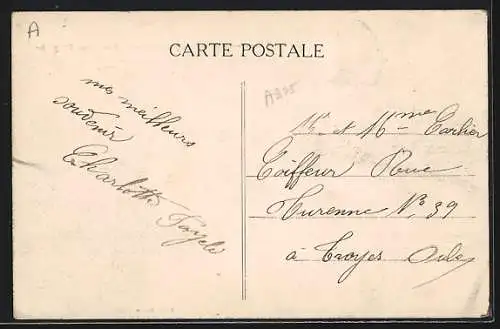 A
CARTE POSTALE
A395
mes meilleurs
souvenir
Charlotte
Mr et Mme Carlier
Coiffeur Rue
Turenne No 39
à Troyes Aube